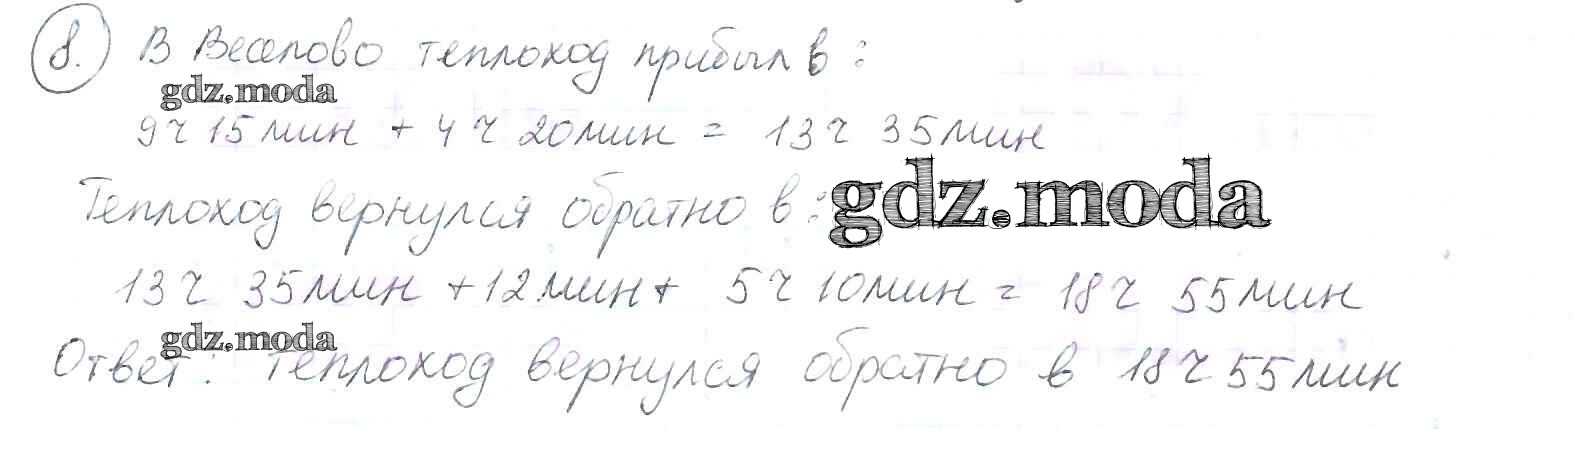 8. В Веселово теплоход прибыл в:
gdz.moda
9ч 15мин + 4ч 20мин = 13ч 35мин
Теплоход вернулся обратно в:
gdz.moda
13ч 35мин + 12мин + 5ч 10мин = 18ч 55мин
gdz.moda
Ответ: теплоход вернулся обратно в 18ч 55мин